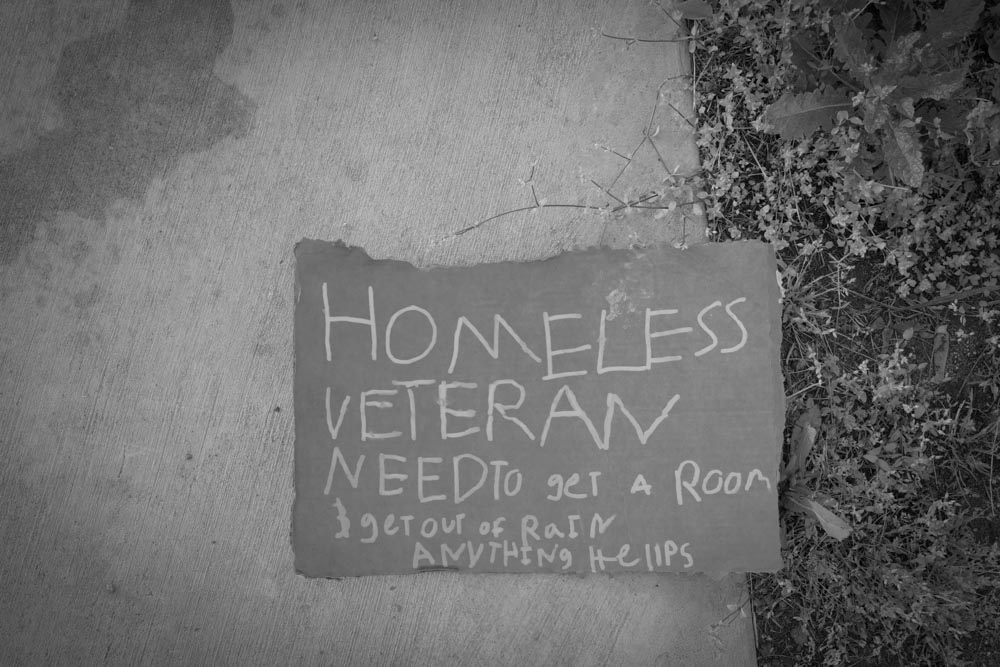 HOMELESS
VETERAN
NEED TO get A ROOM
$ get out of RaIN
ANYTHING HellPS